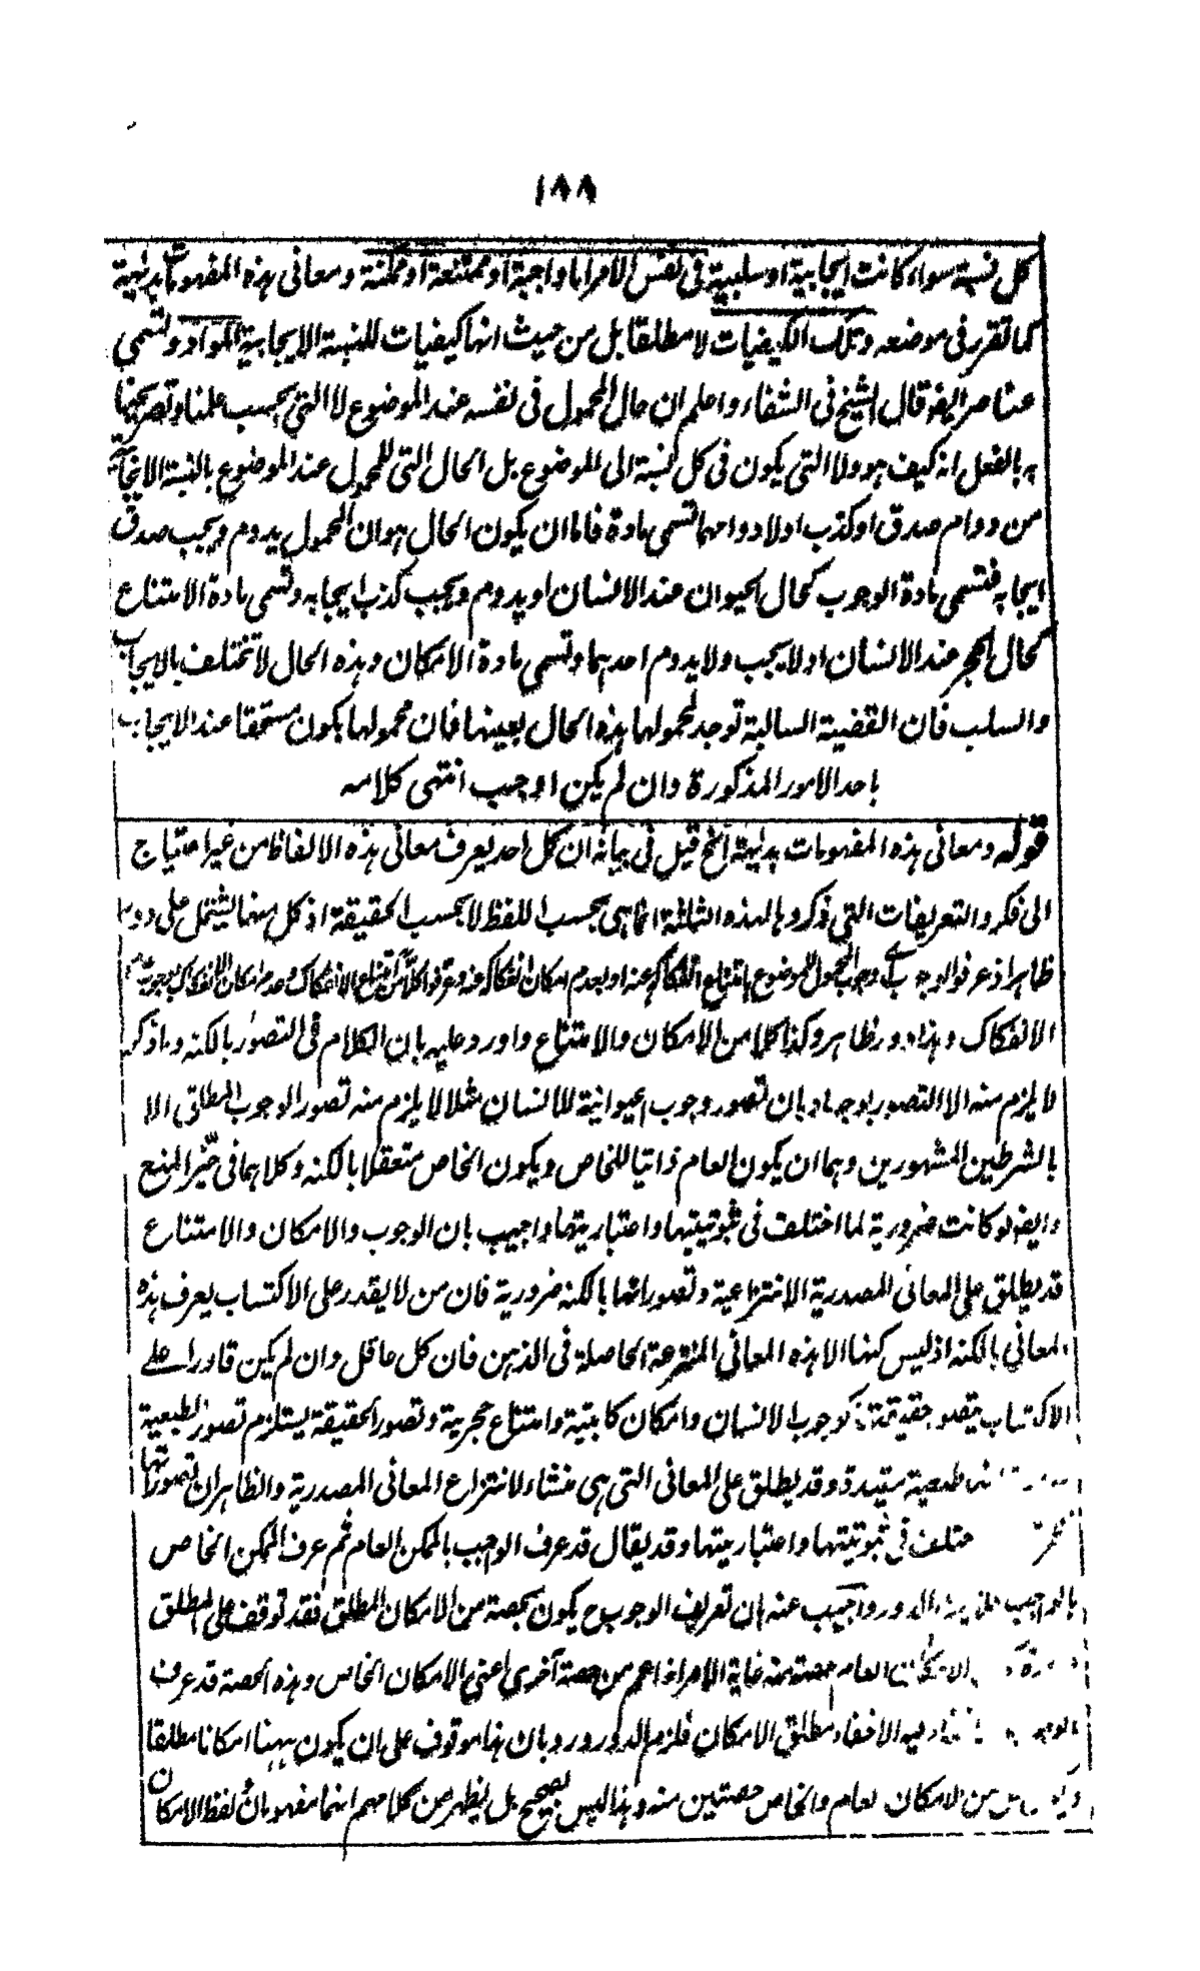 ١٨٨
كل نسبة سواء كانت ايجابية او سلبية فى نفس الامر اما واجبة او ممتنعة او ممكنة ومعانى هذه المفهومات بديهية
كما تقرر فى موضعه وتلك الكيفيات لا مطلقا بل من حيث انها كيفيات للنسبة الايجابية المواد وتسمى
عناصر ايضا قال الشيخ فى الشفاء واعلم ان حال المحمول فى نفسه عند الموضوع لا التى بحسب علمنا وتصريحنا
به بالفعل انه كيف هو ولا التى يكون فى كل نسبة الى الموضوع بل الحال التى للمحمول عند الموضوع بالنسبة الايجابية
من دوام صدق او كذب اولا دوامهما تسمى مادة فاما ان يكون الحال هو ان المحمول يدوم ويجب صدق
ايجابه فتسمى مادة الوجوب كحال الحيوان عند الانسان او يدوم ويجب كذب ايجابه وتسمى مادة الامتناع
كحال الحجر عند الانسان اولا يجب ولا يدوم احدهما وتسمى مادة الامكان وهذه الحال لا تختلف بالايجاب
والسلب فان القضية السالبة توجد لمحمولها هذه الحال بعينها فان محمولها يكون مستحقا عند الايجاب
باحد الامور المذكورة وان لم يكن اوجب انتهى كلامه
قوله ومعانى هذه المفهومات بديهية الخ قيل فى بيانه ان كل احد يعرف معانى هذه الالفاظ من غير احتياج
الى فكر والتعريفات التى ذكروها لهذه الثلاثة انما هى بحسب اللفظ لا بحسب الحقيقة اذ كل منها يشتمل على دور
ظاهر اذ عرفوا الوجوب وجوب المحمول للموضوع بامتناع انفكاكه عنه او بعدم امكان انفكاكه عنه وعرفوا
الانفكاك وهذا دور ظاهر وكذا كلا من الامكان والامتناع واورد عليه بان الكلام فى التصور بالكنه وما ذكر
لا يلزم منه الا التصور بوجه ما وبان تصور وجوب الحيوانية للانسان مثلا لا يلزم منه تصور الوجوب المطلق الا
بالشرطين المشهورين وهما ان يكون العام ذاتيا للخاص ويكون الخاص متعقلا بالكنه وكلاهما فى حيّز المنع
وايضا لو كانت ضرورية لما اختلف فى ثبوتيتها واعتباريتها واجيب بان الوجوب والامكان والامتناع
قد يطلق على المعانى المصدرية الانتزاعية وتصوراتها بالكنه ضرورية فان من لا يقدر على الاكتساب يعرف هذه
المعانى بالكنه اذ ليس كنهها الا هذه المعانى المنتزعة الحاصلة فى الذهن فان كل عاقل وان لم يكن قادرا على
الاكتساب يتصور حقيقة كوجوب الانسان وامكان كاتبيته وامتناع حجريته وتصور الحقيقة يستلزم تصور الطبيعة
طبيعة مقيدة وقد يطلق على المعانى التى هى منشاء لانتزاع المعانى المصدرية والظاهر ان تصوراتها
اختلف فى ثبوتيتها واعتباريتها وقد يقال قد عرف الواجب بالممكن العام ثم عرف الممكن الخاص
بالواجب الدور واجيب عنه ان تعريف الوجوب ح يكون بحصة من الامكان المطلق فقد توقف على المطلق
الامكان العام حصة منه غاية الامر انه اعم من حصة آخرى اعنى الامكان الخاص وهذه الحصة قد عرف
فيه الاخفاء مطلق الامكان فلزم الدور ورد بان هذا موقوف على ان يكون ههنا امكانا مطلقا
من الامكان العام والخاص حصتين منه وهذا ليس بصحيح بل يظهر من كلامهم انهما مفهومان لفظ الامكان